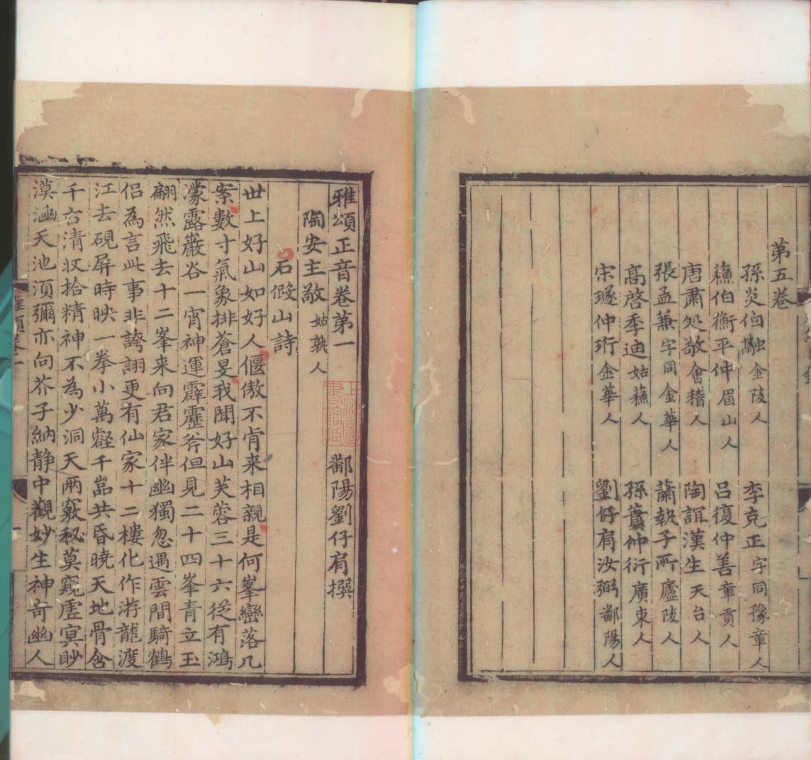 第五卷
孫炎伯融金陵人　李克正字同豫章人
蘓伯衡平仲眉山人　吕復仲善章貢人
唐肅処敬會稽人　陶誼漢生天台人
張孟兼字同金華人　蕭執子所廬陵人
髙啓季迪姑蘓人　孫蕡仲衍廣東人
宋璲仲珩金華人　劉仔肩汝弼鄱陽人
雅頌正音卷第一　鄱陽劉仔肩撰
陶安主敬姑孰人
石假山詩
世上好山如好人偃傲不肯来相親是何峯巒落几
案數寸氣象排蒼旻我聞好山芙蓉三十六後有鴻
濛露巖谷一宵神運霹靂斧但見二十四峯青立玉
翩然飛去十二峯来向君家伴幽獨忽遇雲間騎鶴
侣為言此事非誇詡更有仙家十二樓化作游龍渡
江去硯屏時映一拳小萬壑千嵓共昏曉天地骨含
千古清収拾精神不為少洞天兩竅秘莫窺虚冥眇
漠涵天池須彌亦向芥子納静中觀妙生神奇幽人